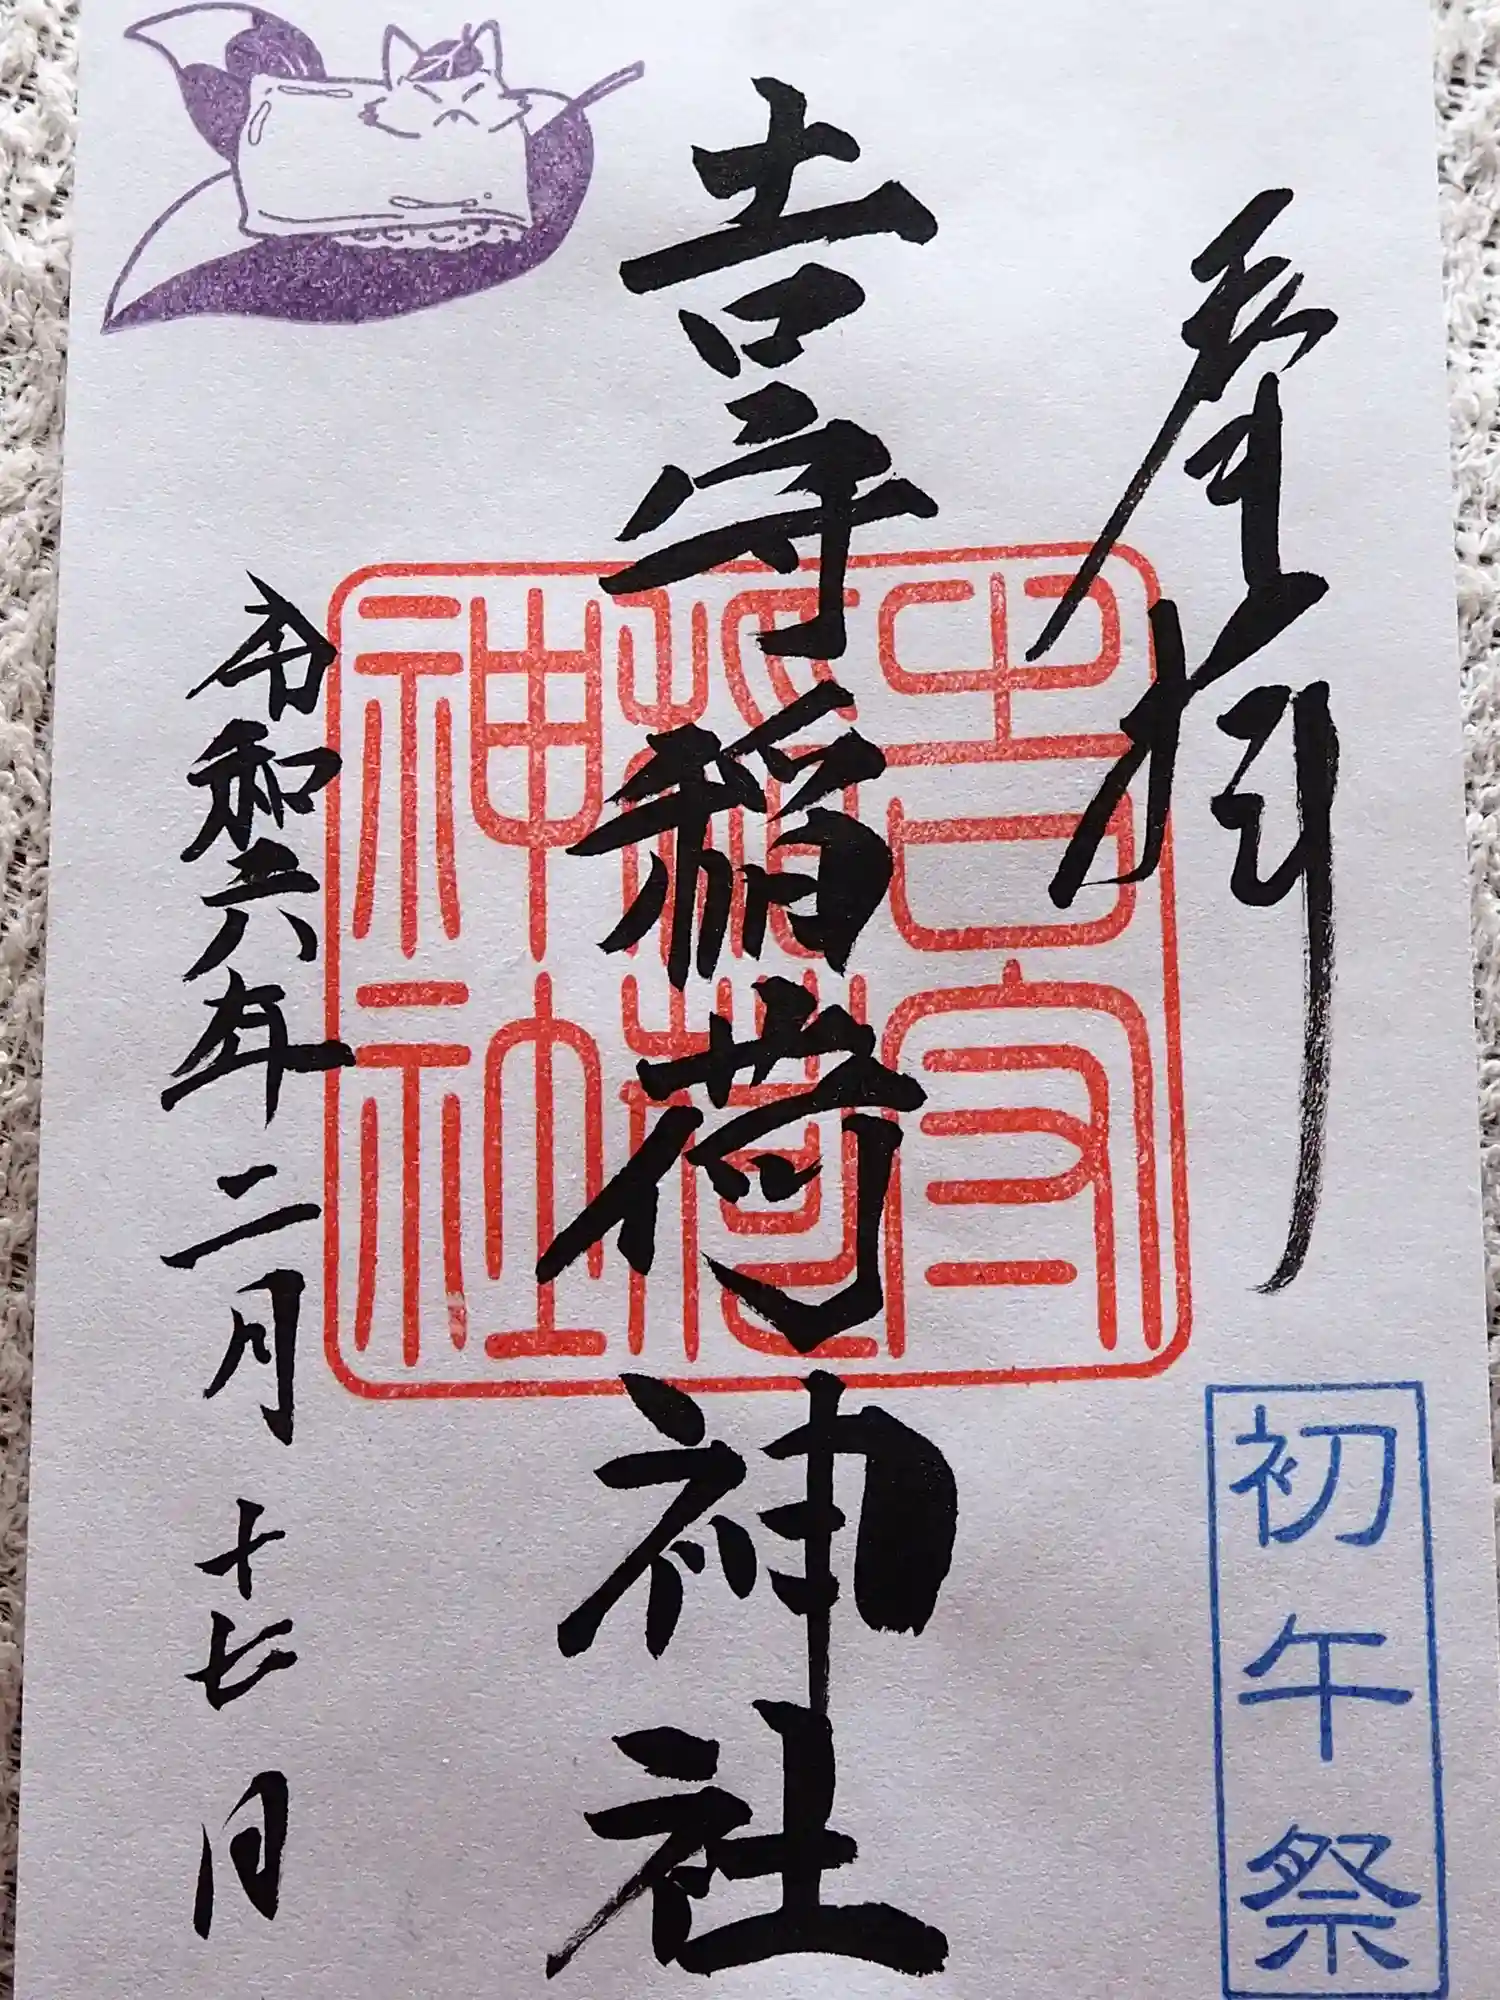 奉拝
初午祭
吉守稲荷神社
吉守稲荷神社
令和六年二月十七日